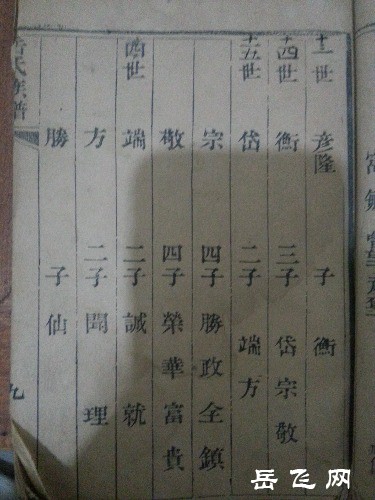 十三世 彦隆 子 衡
十四世 衡 三子 岱宗敬
十五世 岱 二子 端方
宗 四子 勝政全鎮
敬 四子 榮華富貴
世 端 二子 誠就
方 二子 聞理
勝 子 仙
岳氏族譜 九
岳飞网